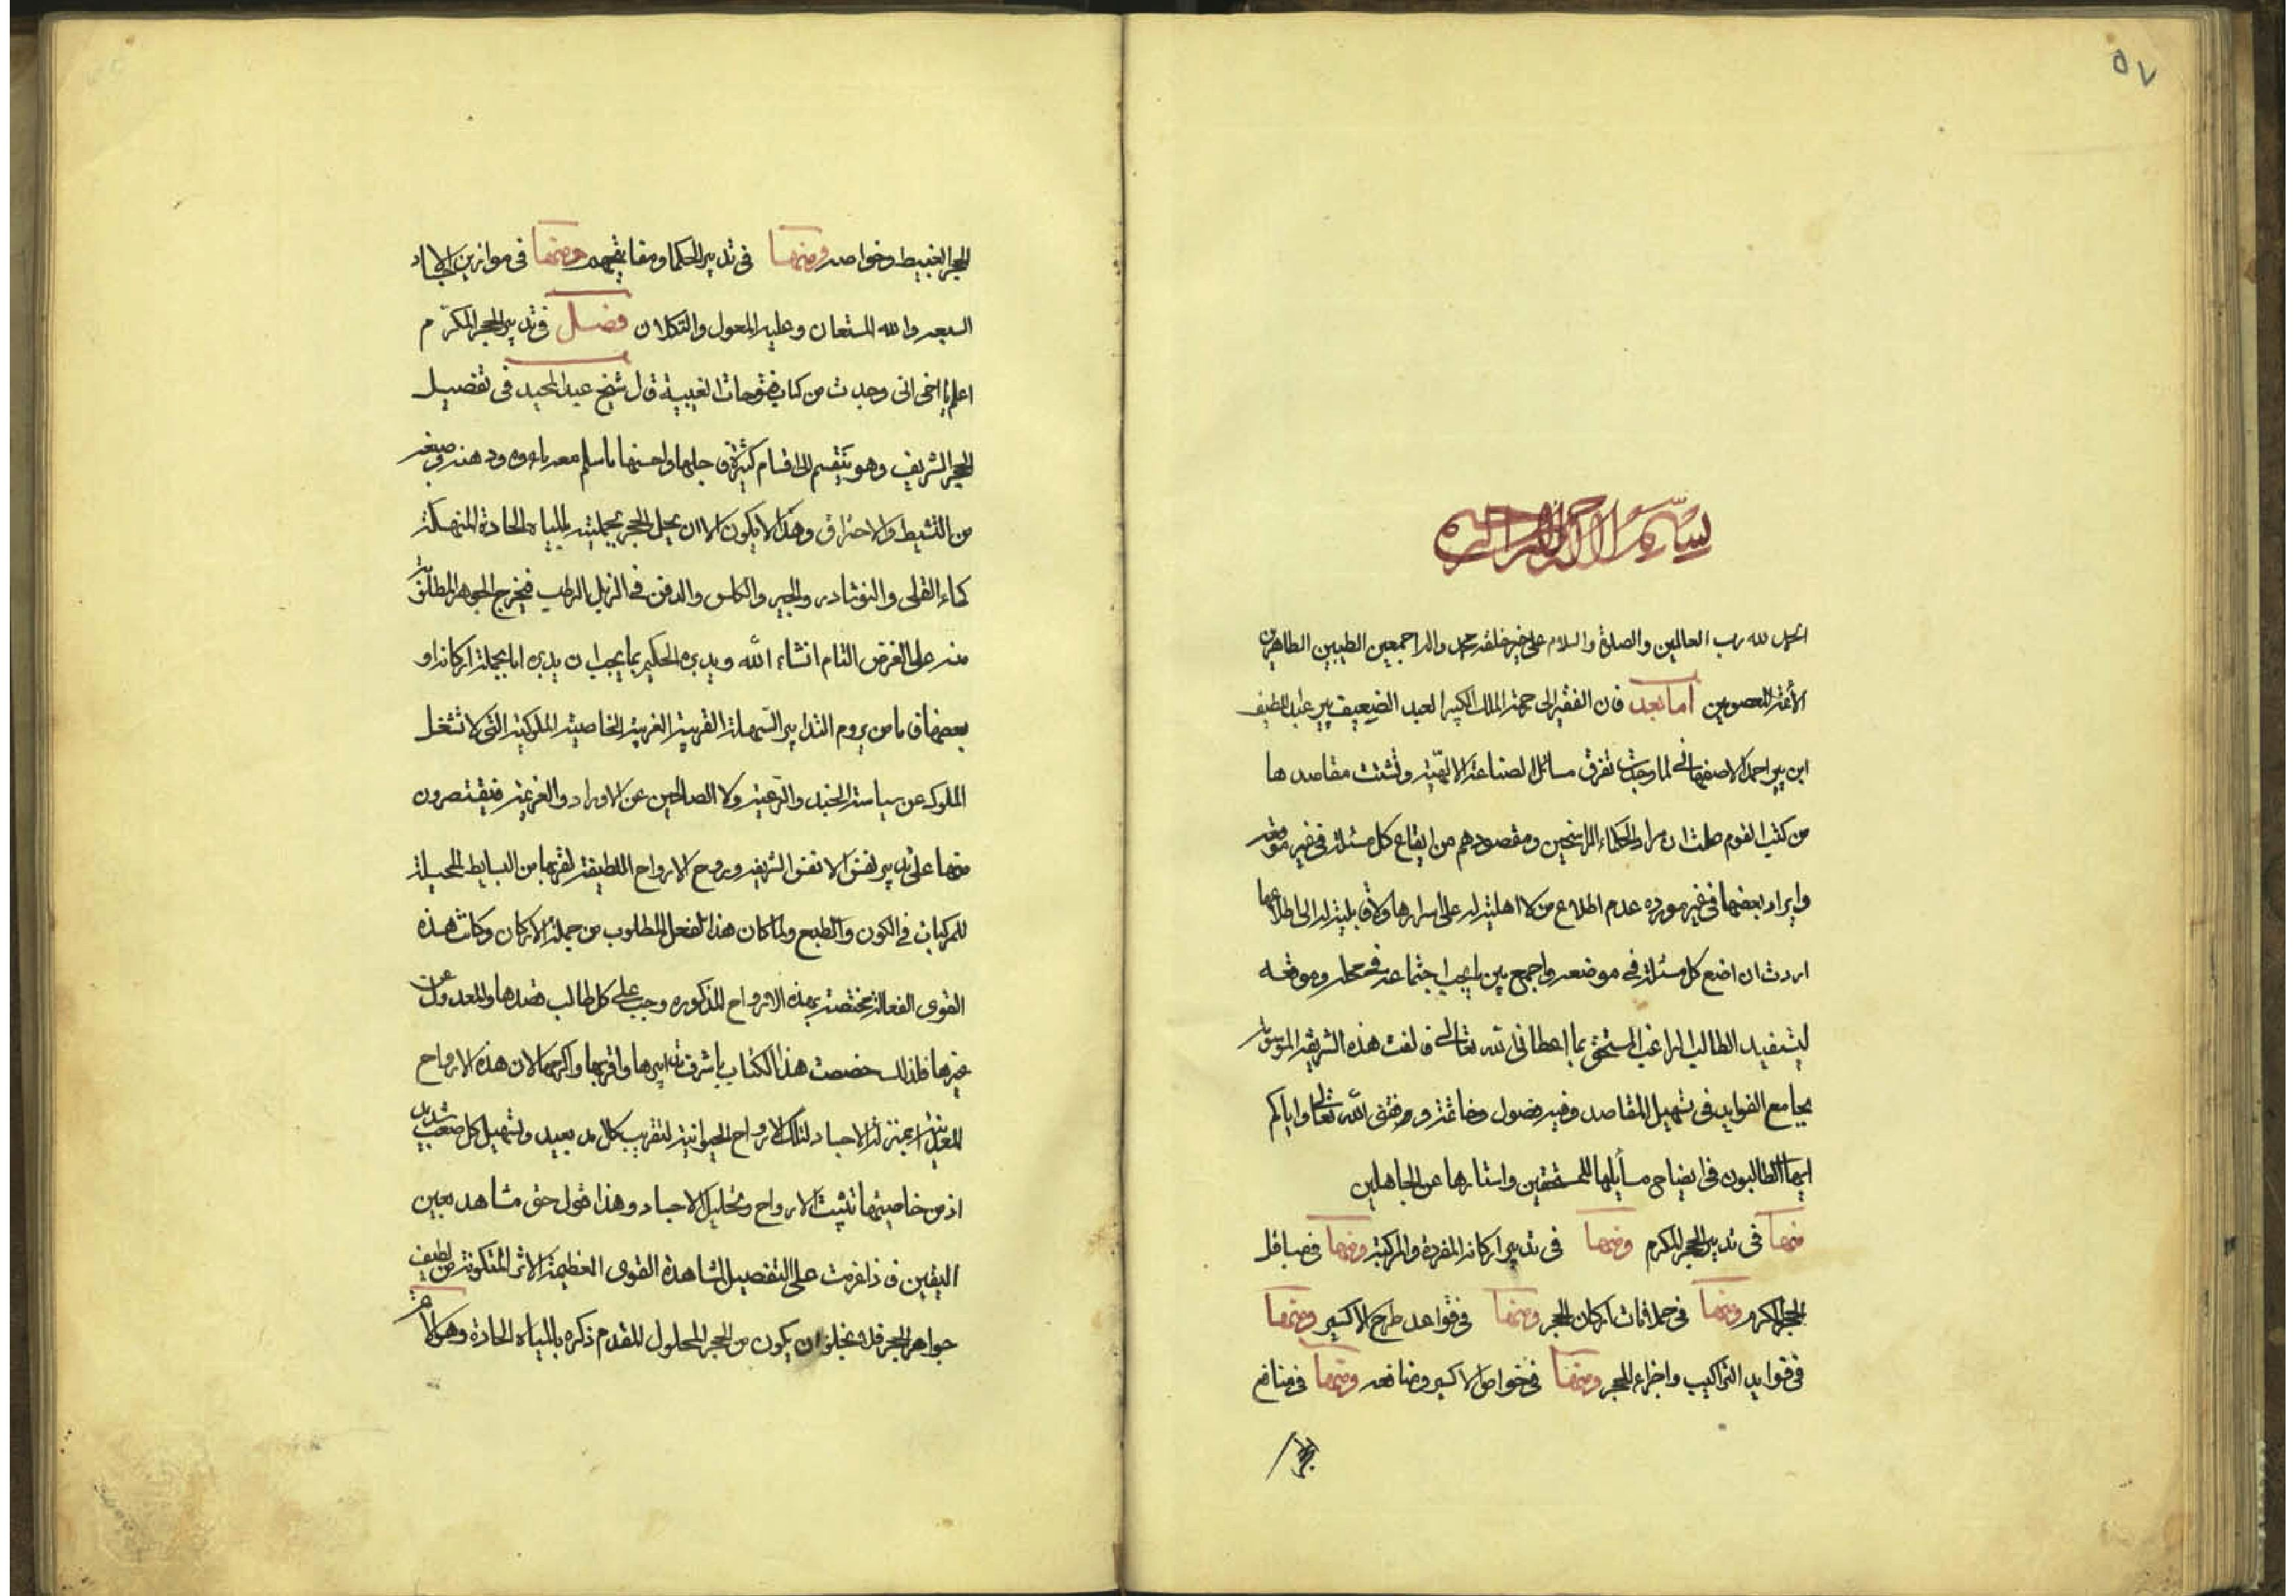 ٥٧
بسم الله الرحمن الرحيم
الحمد لله رب العالمين والصلوة والسلام على خير خلقه محمد واله اجمعين الطيبين الطاهرين
الأئمة المعصومين اما بعد فان الفقير الى رحمة الملك الكبير العبد الضعيف پير عبد اللطيف
ابن پير احمد الاصفهانى لما وجدت تفرق مسائل الصناعة الالهية وتشتت مقاصدها
من كتب القوم علمت ان مراد الحكماء الراسخين ومقصودهم من ايقاع كل مسئلة فى غير موقعه
وايراد بعضها فى غير مورده عدم اطلاع من لا اهلية له على اسرارها ولا قابلية له الى اطلاعها
اردت ان اضع كل مسئلة فى موضعه واجمع بين ما يجب اجتماعه فى محله وموقعه
ليستفيد الطالب الراغب المستحق بما اعطانى الله تعالى فالفت هذه الشريفة الموسومة
بجامع الفوايد فى تسهيل المقاصد وفيه فصول وخاتمة ووفقنى الله تعالى واياكم
ايها الطالبون فى ايضاح مسايلها للمستحقين واستارها عن الجاهلين
منها فى تدبير الحجر المكرم ومنها فى تدبير اركانه المفردة والمركبة ومنها فى
الحجر المكرم ومنها فى اركان الحجر ومنها فى قواعد طرح الاكسير ومنها
فى فوايد التراكيب واجزاء الحجر ومنها فى خواص الاكسير ومنافعه ومنها فى منافع
الحجر
الحجر الغبيط وخواصه ومنها فى تدبير الحكما ومنها فى موازين الاجساد
السبعه والله المستعان وعليه المعول والتكلان فصل فى تدبير الحجر المكرّم
اعلم يا اخى انى وجدت من كتاب فتوحات الغيبية قال شيخ عبد المجيد فى تفصيل
الحجر الشريف وهو ينقسم الى اقسام كثيرة فاجلها واحسنها ما سلم معه ماءه ودهنه وصبغه
من التشيط والاحتراق وهذا لا يكون الا ان يحل الحجر بجملته بالمياه الحادة المنهكة
كماء القلى والنوشادر والجير والكلس والدفن فى الزبل الرطب فيخرج الجوهر المطلوب
منه على الغرض التام انشاء الله ويدبره الحكيم بما يجب ان يدبره اما بجملة اركانه او
بعضها فاما من يروم التدابير السهلة القريبة الغريبة الخاصية الملوكية التى لا تشغل
الملوك عن سياسة الجند والرعية ولا الصالحين عن الاوراد والفرغية فيقتصرون
منها على تدبير نفس الانفس الشريفة وروح الارواح اللطيفة لقربها من البسايط المحيلة
للمركبات فى الكون والطبع ولما كان هذا الفعل المطلوب من جملة الاركان وكانت هذه
القوى الفعالة مختصة بهذه الارواح المذكوره وجب على كل طالب قصدها والعدول عن
غيرها فلذلك خصصت هذا الكتاب باشرف تدابيرها واقربها واكرمها لان هذه الارواح
المعدنية بمنزلة الاجساد لتلك الارواح الحيوانية لتقريب كل بعيد وتسهيل كل صعب شديد
اذ من خاصيتها تثبيت الارواح وتحليل الاجساد وهذا قول حق مشاهد بعين
اليقين فاذا عزمت على التفصيل لمشاهدة القوى العظيمة الاثر المتكونة من لطيف
جواهر الحجر فلا يخلو ان يكون من الحجر المحلول المقدم ذكره بالمياه الحادة وهو